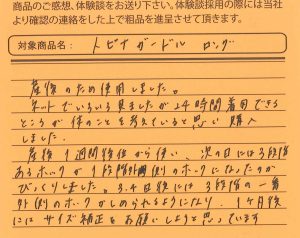 商品のご感想、体験談をお送り下さい。体験談採用の際には当社
より確認の連絡をした上で粗品を進呈させて頂きます。
対象商品名: トビナガードル ロング
産後のため使用しました。
ネットでいろいろ見ましたが24時間着用できる
ところが体のことを考えていると思い購入
しました。
産後1週間 から使い、次の日には3段階
あるホックが1段階外側のホックになったのが
びっくりしました。3.4日後には3段階の一番
外側のホックがしめられるようになり、1ヶ月後
にはサイズ補正をお願いしようと思っています